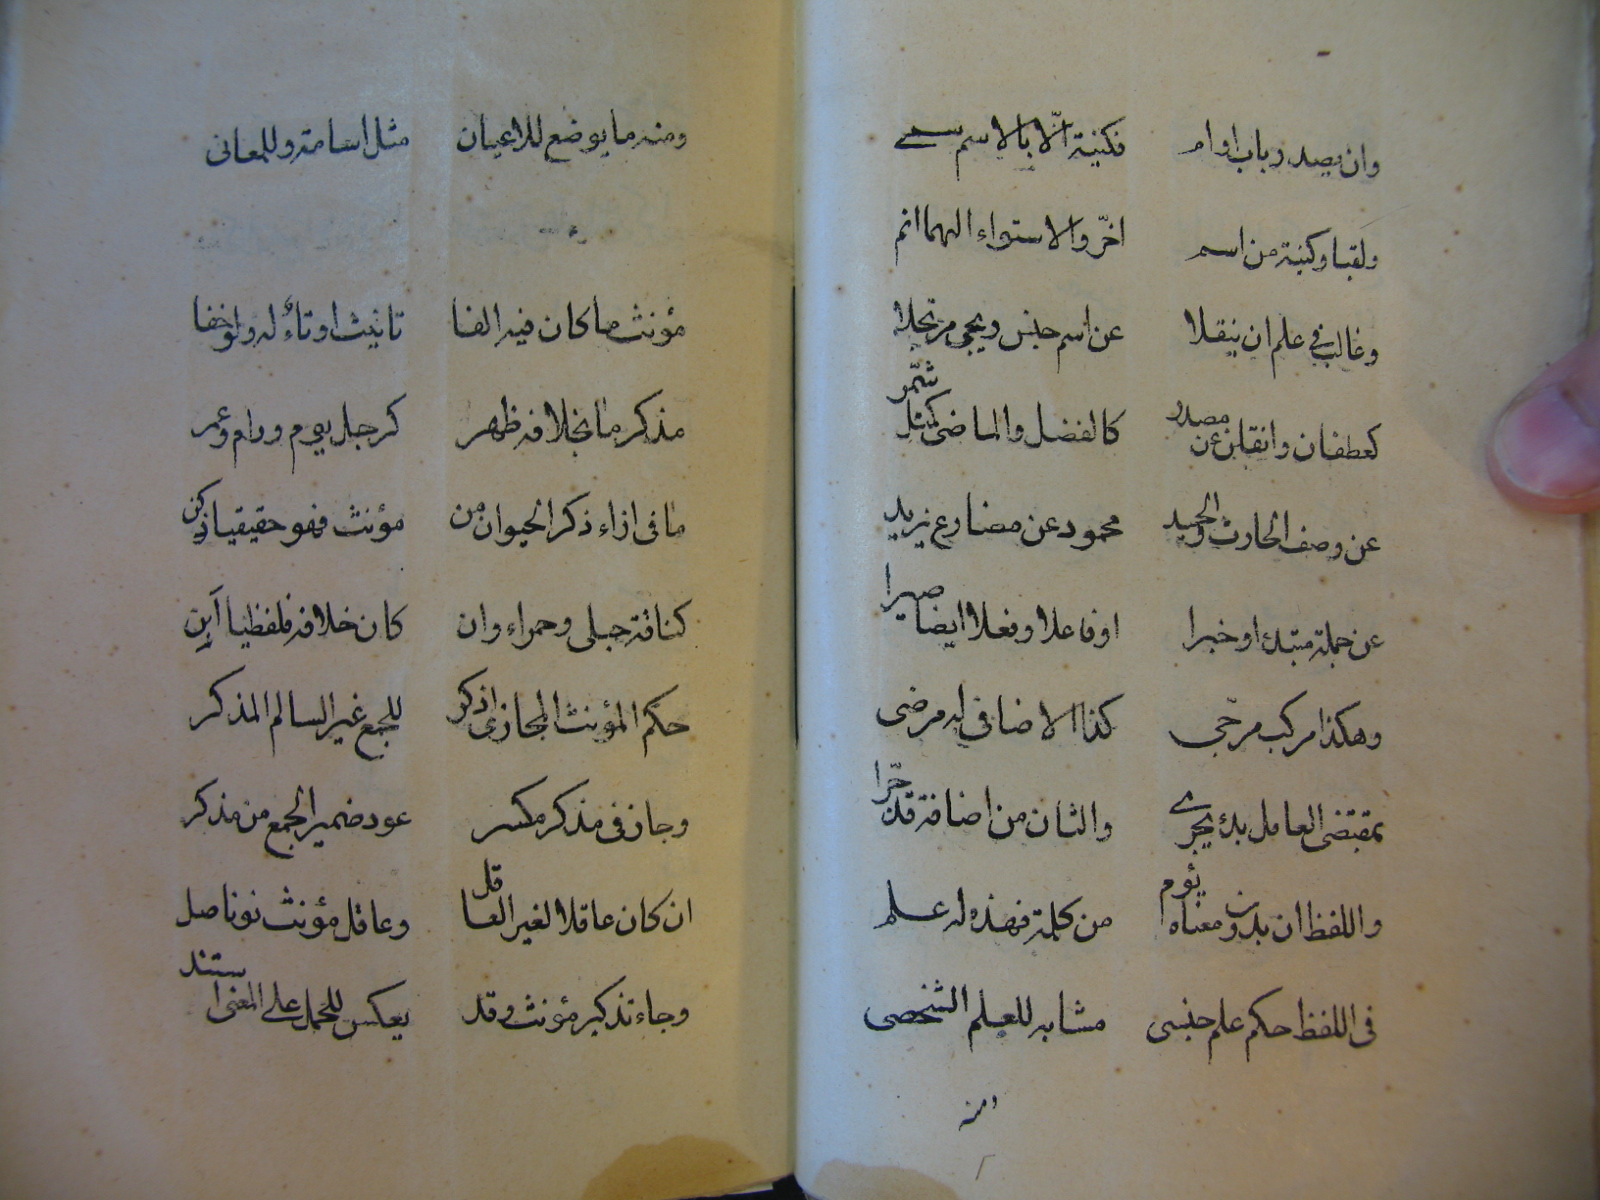 وان يصدر باب او ام فكنية الّا بالاسم سمے
ولقبا وكنية من اسم اخّر والاستواء اليهما انم
وغالب في علم ان ينقلا عن اسم جنس ويجى مرتجلا
كعطفان وانقلن عن مصدر كالفضل والماضى كمثل شمّر
عن وصف الحارث والحميد محمود عن مضارع يزيد
عن جملة مبتدء او خبرا او فاعلا وفعلا ايضا صيرا
وهكذا مركب مزجى كذا الاضافى له مرضى
بمقتضى العامل بدء يجرے والثان من اضافة قد جرّا
واللفظ ان بدون معناه يؤم من كلمة فهذه له علم
فى اللفظ حكم علم جنسى مشابه للعلم الشخصى
ومنه
ومنه ما يوضع للاعيان مثل اسامة وللمعانى
مؤنث ما كان فيه الفا تانيث او تاءٌ له ولو خفا
مذكر ما بخلافه ظهر كرجل يوم ورام وعمر
ما فى ازاء ذكر الحيوان من مؤنث فهو حقيقيا زكن
كناقة حبلى وحمراء وان كان خلافه فلفظيا اَبِن
حكم المؤنث المجازى اذكر للجمع غير السالم المذكر
وجاز فى مذكر مكسر عود ضمير الجمع من مذكر
ان كان عاقلا لغير العاقل وعاقل مؤنث نونا صل
وجاء تذكير مؤنث وقد يعكس للحمل على المعنى استند